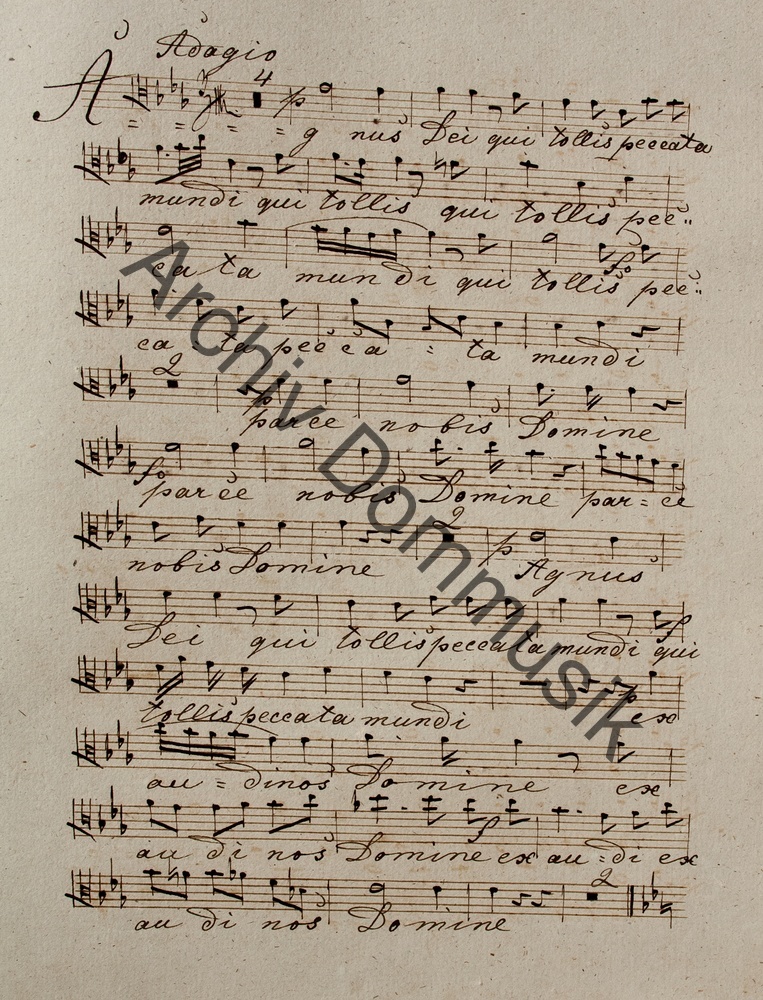 Adagio
4 p
A = = = = g nus Dei qui tollis peccata
mundi qui tollis qui tollis pec=
ca ta mun di qui tollis pec=
fo
ca ta pec ca = ta mundi
2 p
parce nobis Domine
fo
parce nobis Domine par= ce
2 p
nobis Domine Agnus
Dei qui tollis peccata mundi qui
f
tollis peccata mundi ex
p
au = dinos Do mine ex
au di nos Domine ex au = di ex
f
2
au di nos Domine
Archiv Dommusik